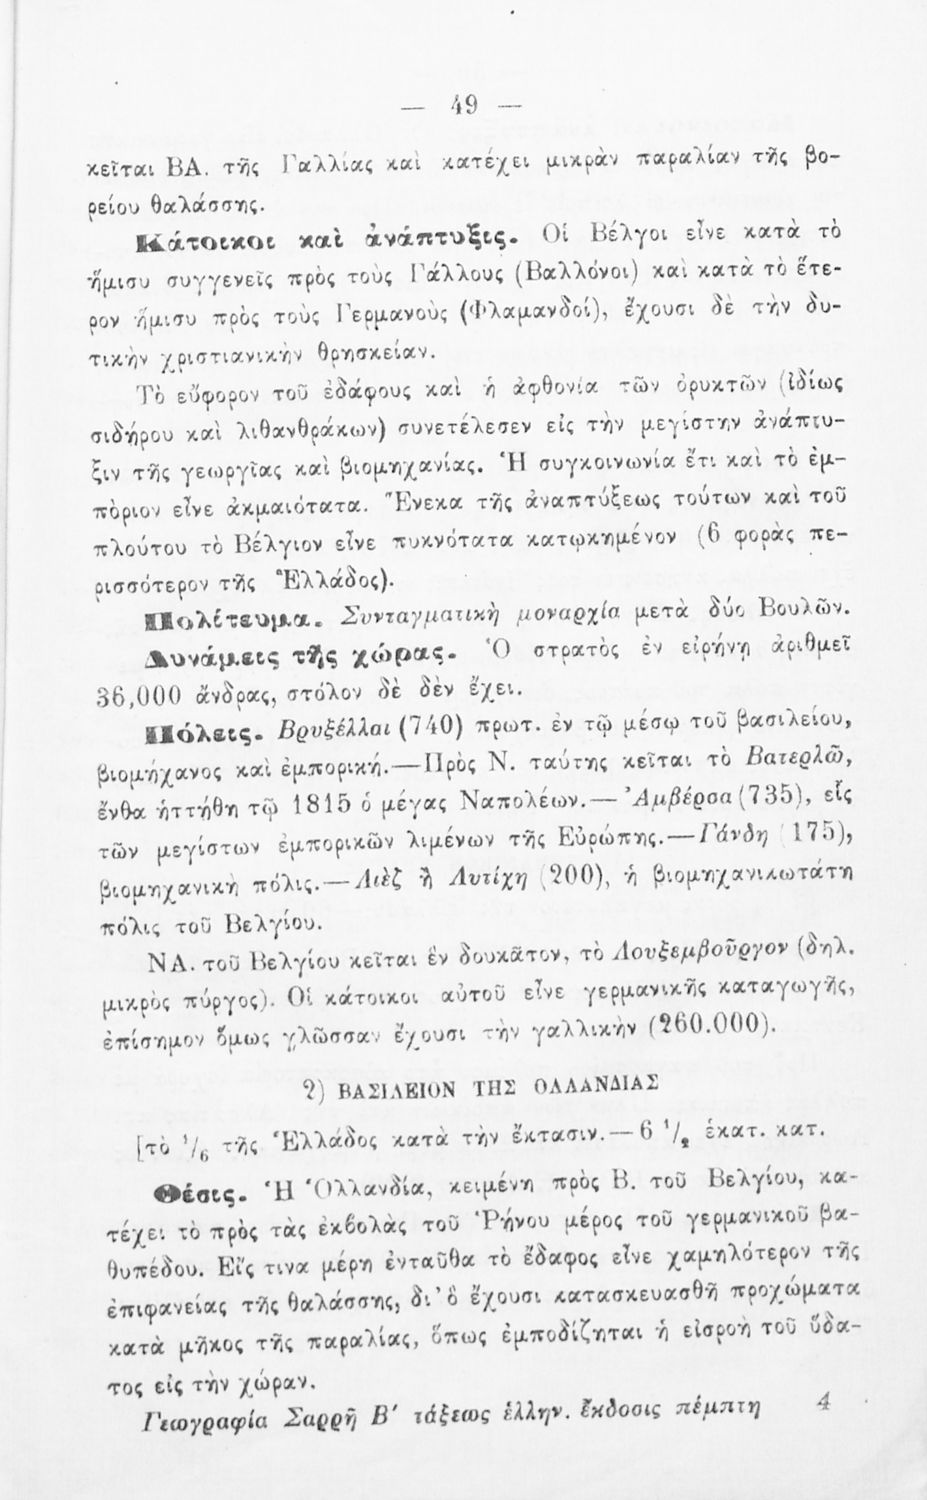 — 49 —
κεῖται ΒΑ. τῆς Γαλλίας καὶ κατέχει μικρὰν παραλίαν τῆς βο-
ρείου θαλάσσης.
Κάτοικοι καὶ ἀνάπτυξις. Οἱ Βέλγοι εἶνε κατὰ τὸ
ἥμισυ συγγενεῖς πρὸς τοὺς Γάλλους (Βαλλόνοι) καὶ κατὰ τὸ ἕτε-
ρον ἥμισυ πρὸς τοὺς Γερμανοὺς (Φλαμανδοί), ἔχουσι δὲ τὴν δυ-
τικὴν χριστιανικὴν θρησκείαν.
Τὸ εὔφορον τοῦ ἐδάφους καὶ ἡ ἀφθονία τῶν ὀρυκτῶν (ἰδίως
σιδήρου καὶ λιθανθράκων) συνετέλεσεν εἰς τὴν μεγίστην ἀνάπτυ-
ξιν τῆς γεωργίας καὶ βιομηχανίας. Ἡ συγκοινωνία ἔτι καὶ τὸ ἐμ-
πόριον εἶνε ἀκμαιότατα. Ἕνεκα τῆς ἀναπτύξεως τούτων καὶ τοῦ
πλούτου τὸ Βέλγιον εἶνε πυκνότατα κατῳκημένον (6 φορὰς πε-
ρισσότερον τῆς Ἑλλάδος).
Πολίτευμα. Συνταγματικὴ μοναρχία μετὰ δύο Βουλῶν.
Δυνάμεις τῆς χώρας. Ὁ στρατὸς ἐν εἰρήνῃ ἀριθμεῖ
36,000 ἄνδρας, στόλον δὲ δὲν ἔχει.
Πόλεις. Βρυξέλλαι (740) πρωτ. ἐν τῷ μέσῳ τοῦ βασιλείου,
βιομήχανος καὶ ἐμπορική.—Πρὸς Ν. ταύτης κεῖται τὸ Βατερλῶ,
ἔνθα ἡττήθη τῷ 1815 ὁ μέγας Ναπολέων.— Ἀμβέρσα (735), εἷς
τῶν μεγίστων ἐμπορικῶν λιμένων τῆς Εὐρώπης.—Γάνδη (175),
βιομηχανικὴ πόλις.—Λιὲζ ἢ Λυτίχη (200), ἡ βιομηχανικωτάτη
πόλις τοῦ Βελγίου.
ΝΑ. τοῦ Βελγίου κεῖται ἓν δουκᾶτον, τὸ Λουξεμβοῦργον (δηλ.
μικρὸς πύργος). Οἱ κάτοικοι αὐτοῦ εἶνε γερμανικῆς καταγωγῆς,
ἐπίσημον ὅμως γλῶσσαν ἔχουσι τὴν γαλλικὴν (260.000).
2) ΒΑΣΙΛΕΙΟΝ ΤΗΣ ΟΛΛΑΝΔΙΑΣ
[τὸ 1/6 τῆς Ἑλλάδος κατὰ τὴν ἔκτασιν.—6 1/2 ἑκατ. κατ.
Θέσις. Ἡ Ὁλλανδία, κειμένη πρὸς Β. τοῦ Βελγίου, κα-
τέχει τὸ πρὸς τὰς ἐκβολὰς τοῦ Ῥήνου μέρος τοῦ γερμανικοῦ βα-
θυπέδου. Εἴς τινα μέρη ἐνταῦθα τὸ ἔδαφος εἶνε χαμηλότερον τῆς
ἐπιφανείας τῆς θαλάσσης, δι' ὃ ἔχουσι κατασκευασθῆ προχώματα
κατὰ μῆκος τῆς παραλίας, ὅπως ἐμποδίζηται ἡ εἰσροὴ τοῦ ὕδα-
τος εἰς τὴν χώραν.
Γεωγραφία Σαρρῆ Β' τάξεως ἑλλην. ἔκδοσις πέμπτη 4